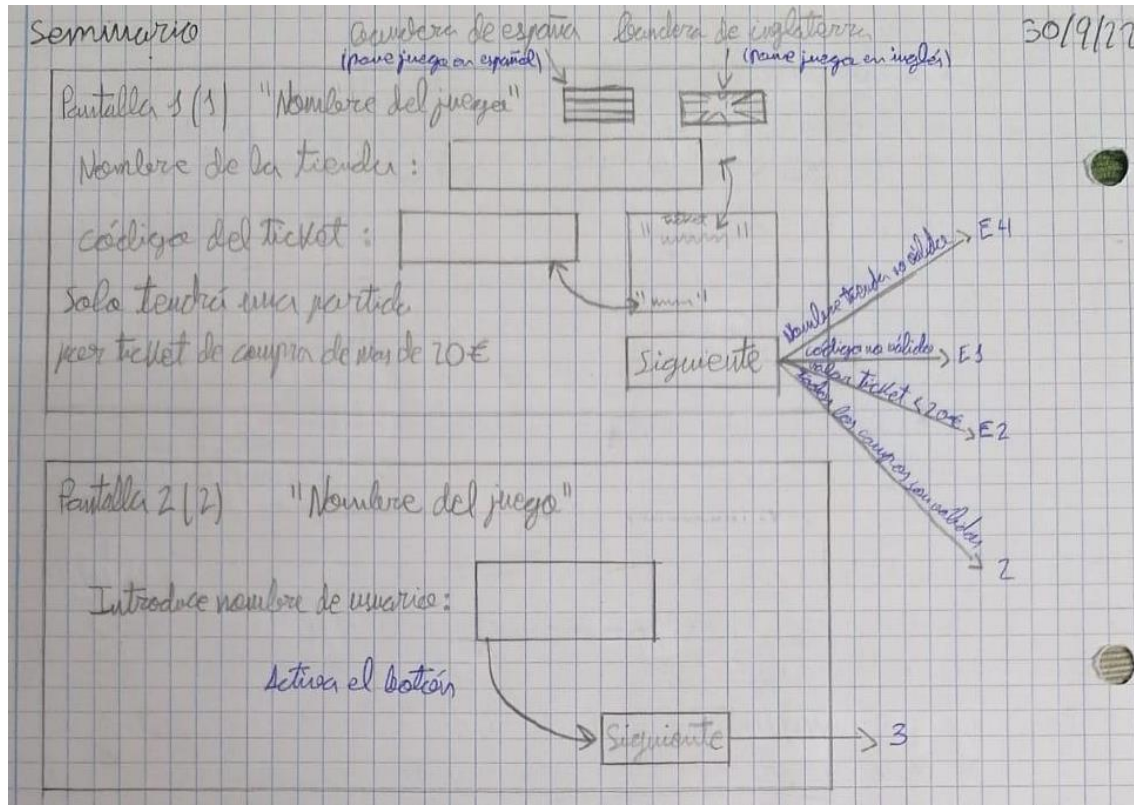 Seminario
30/9/22
bandera de españa
bandera de inglaterra
(pone juego en español)
(pone juego en inglés)
Pantalla 1 (1) "Nombre del juego"
Nombre de la tienda:
código del ticket:
"ticket"
Solo tendrá una partida
por ticket de compra de mas de 20€
Siguiente
Nombre tienda no válido
E4
código no válido
E1
valor ticket < 20€
E2
todos los campos son validos
2
Pantalla 2 (2) "Nombre del juego"
Introduce nombre de usuario:
Activa el botón
Siguiente
3